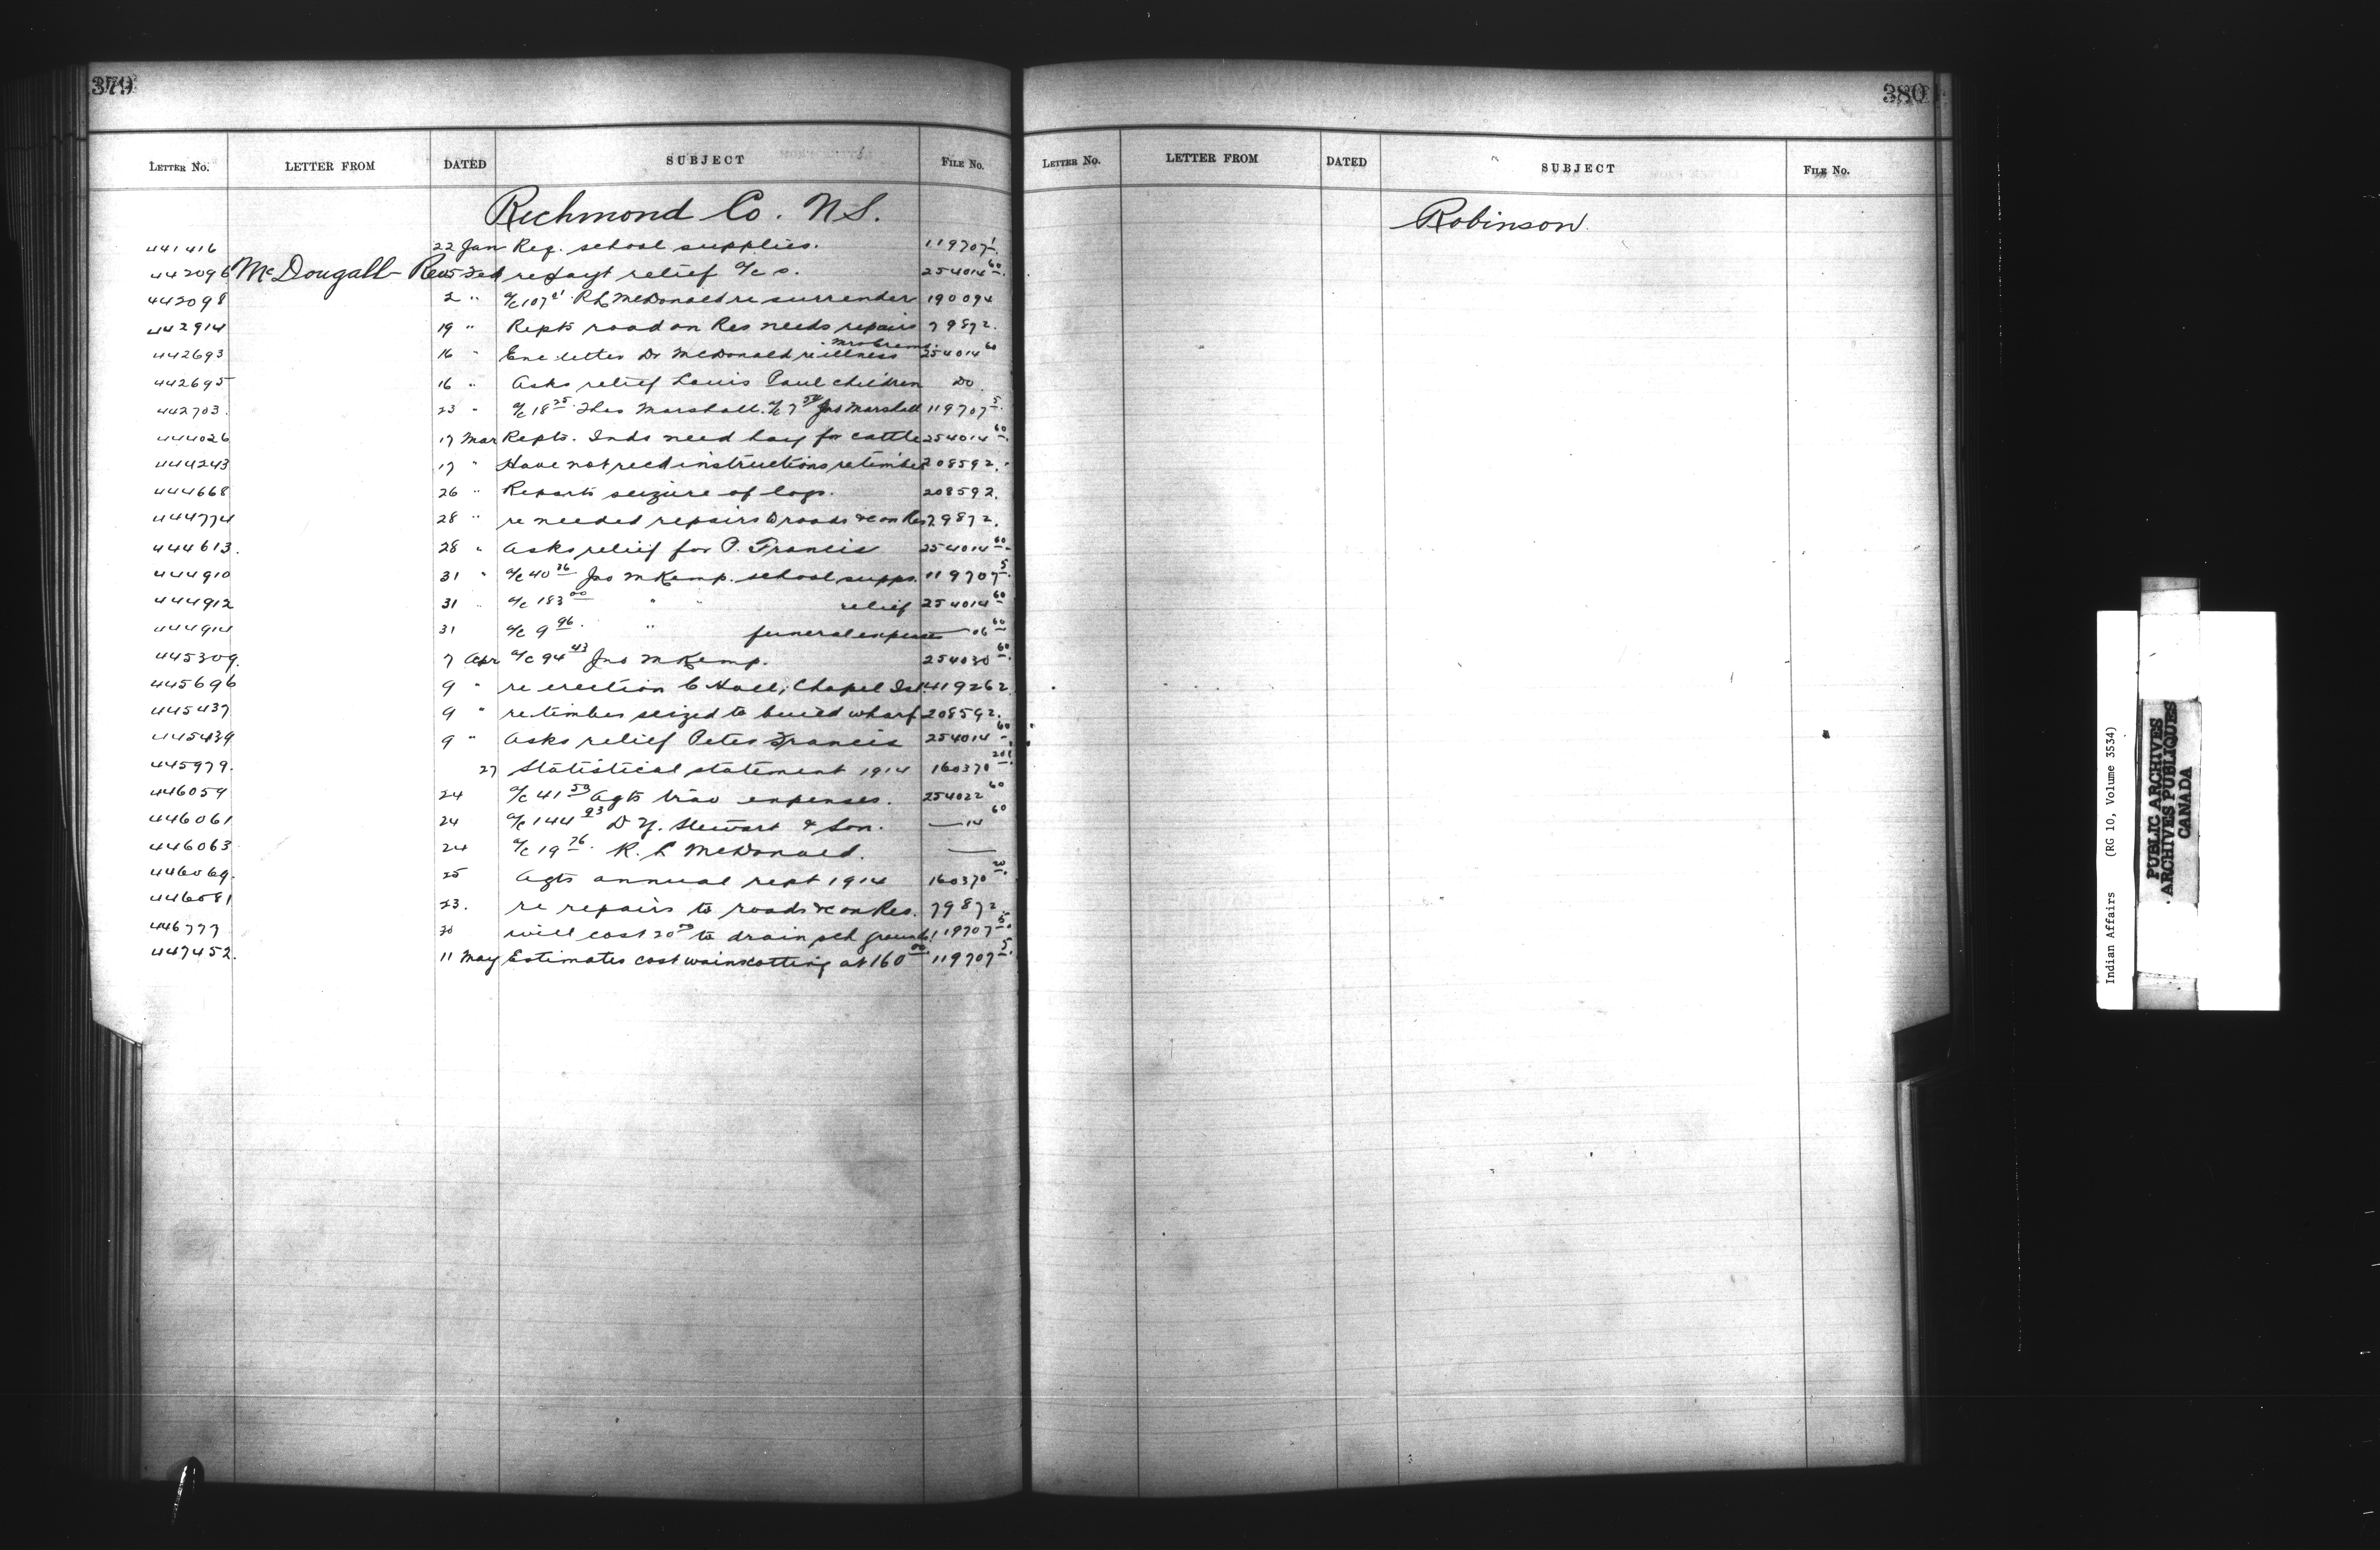 379
LETTER NO. LETTER FROM DATED SUBJECT FILE NO.
Richmond Co. N.S.
441416 22 Jan Req. school supplies. 119707 1
442096 McDougall Rev 5 Feb re payt relief a/c s. 254014 60
442098 2 " a/c 107 21 R L McDonald re surrender 190094
442914 19 " Repts road on Res needs repairs 79872.
442693 16 " Enc letter Dr McDonald re illness Mrs 254014 60
442695 16 " Asks relief Louis Paul children Do
442703. 23 " a/c 18 25 Thos Marshall. a/c 7 50 Jno Marshall 119707 5
444026 17 Mar Repts. Inds need hay for cattle 254014 60
444243 17 " Have not recd instructions re timber 208592.
444668 26 " Reports seizure of logs. 208592.
444774 28 " re needed repairs to roads &c on Res 79872.
444613. 28 " Asks relief for P. Francis 254014 60
444910 31 " a/c 40 36 Jno M Kemp. school supps. 119707 5
444912 31 " a/c 183 00 " " relief 254014 60
444914 31 a/c 9 96 " funeral expenses — 06 60
445309. 7 Apr a/c 94 43 Jno M Kemp. 254030 60
445696 9 " re erection C Hall, Chapel Isl. 419262
445437 9 " re timber seized to build wharf 208592.
445439 9 " Asks relief Peter Francis 254014 60
445979. 27 Statistical statement 1914 160370 20
446059 24 a/c 41 50 Agts trav expenses. 254022 60
446061 24 a/c 144 93 D Y. Stewart & Son. — 14 60
446063 24 a/c 19 76. R. L McDonald. —
446069. 25 Agts annual rept 1914 160370 20
446081 23. re repairs to roads &c on Res. 79872
446777 30 will cost 20 00 to drain sch grounds 119707 5
447452. 11 May Estimates cost wainscotting at 160 00 119707 5
380
LETTER NO. LETTER FROM DATED SUBJECT FILE NO.
Robinson
Indian Affairs (RG 10, Volume 3534)
PUBLIC ARCHIVES
ARCHIVES PUBLIQUES
CANADA